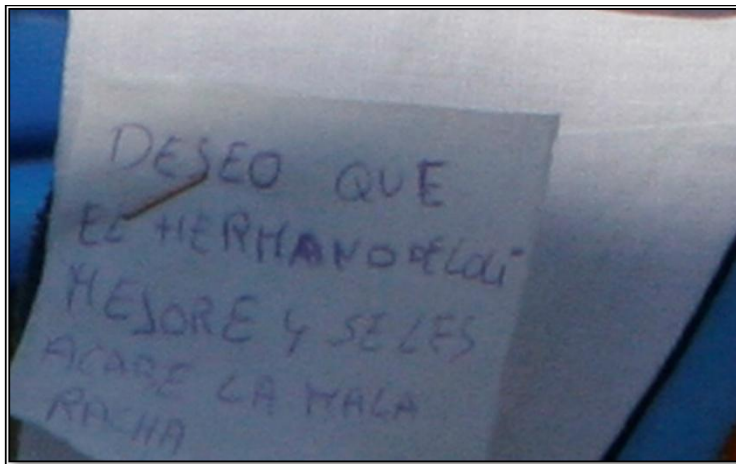 DESEO QUE
EL HERMANO DE LOLI
MEJORE Y SE LES
ACABE LA MALA
RACHA